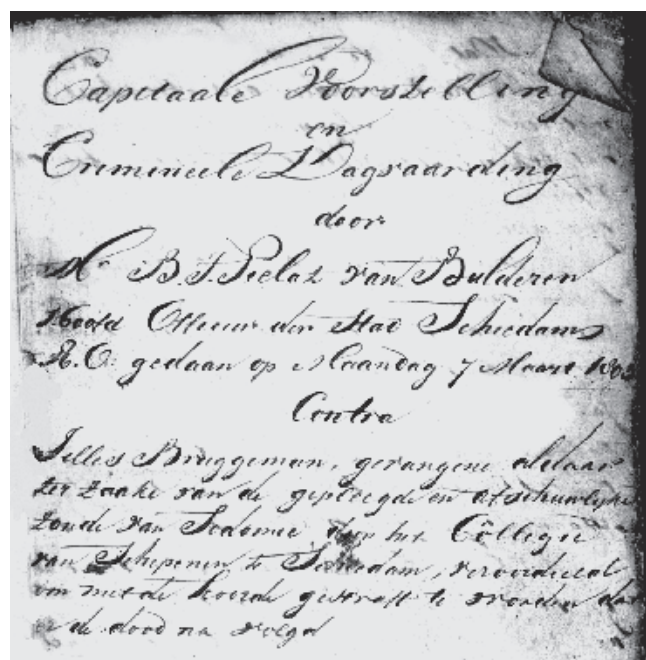 Capitaale Voorstelling
en
Crimineele Dagvaarding
door
Mr. B. J. Pielat van Bulderen
Hoofd Officier der Stad Schiedam
R. O. gedaan op Maandag 7 Maart 1803
Contra
Jillis Bruggeman, gevangene aldaar
ter zaake van de gepleegde en afschuwlyke
zonde van Sodomie door het Collegie
van Schepenen te Schiedam, veroordeeld
om met de koorde gestraft te worden dat
er de dood na volgd